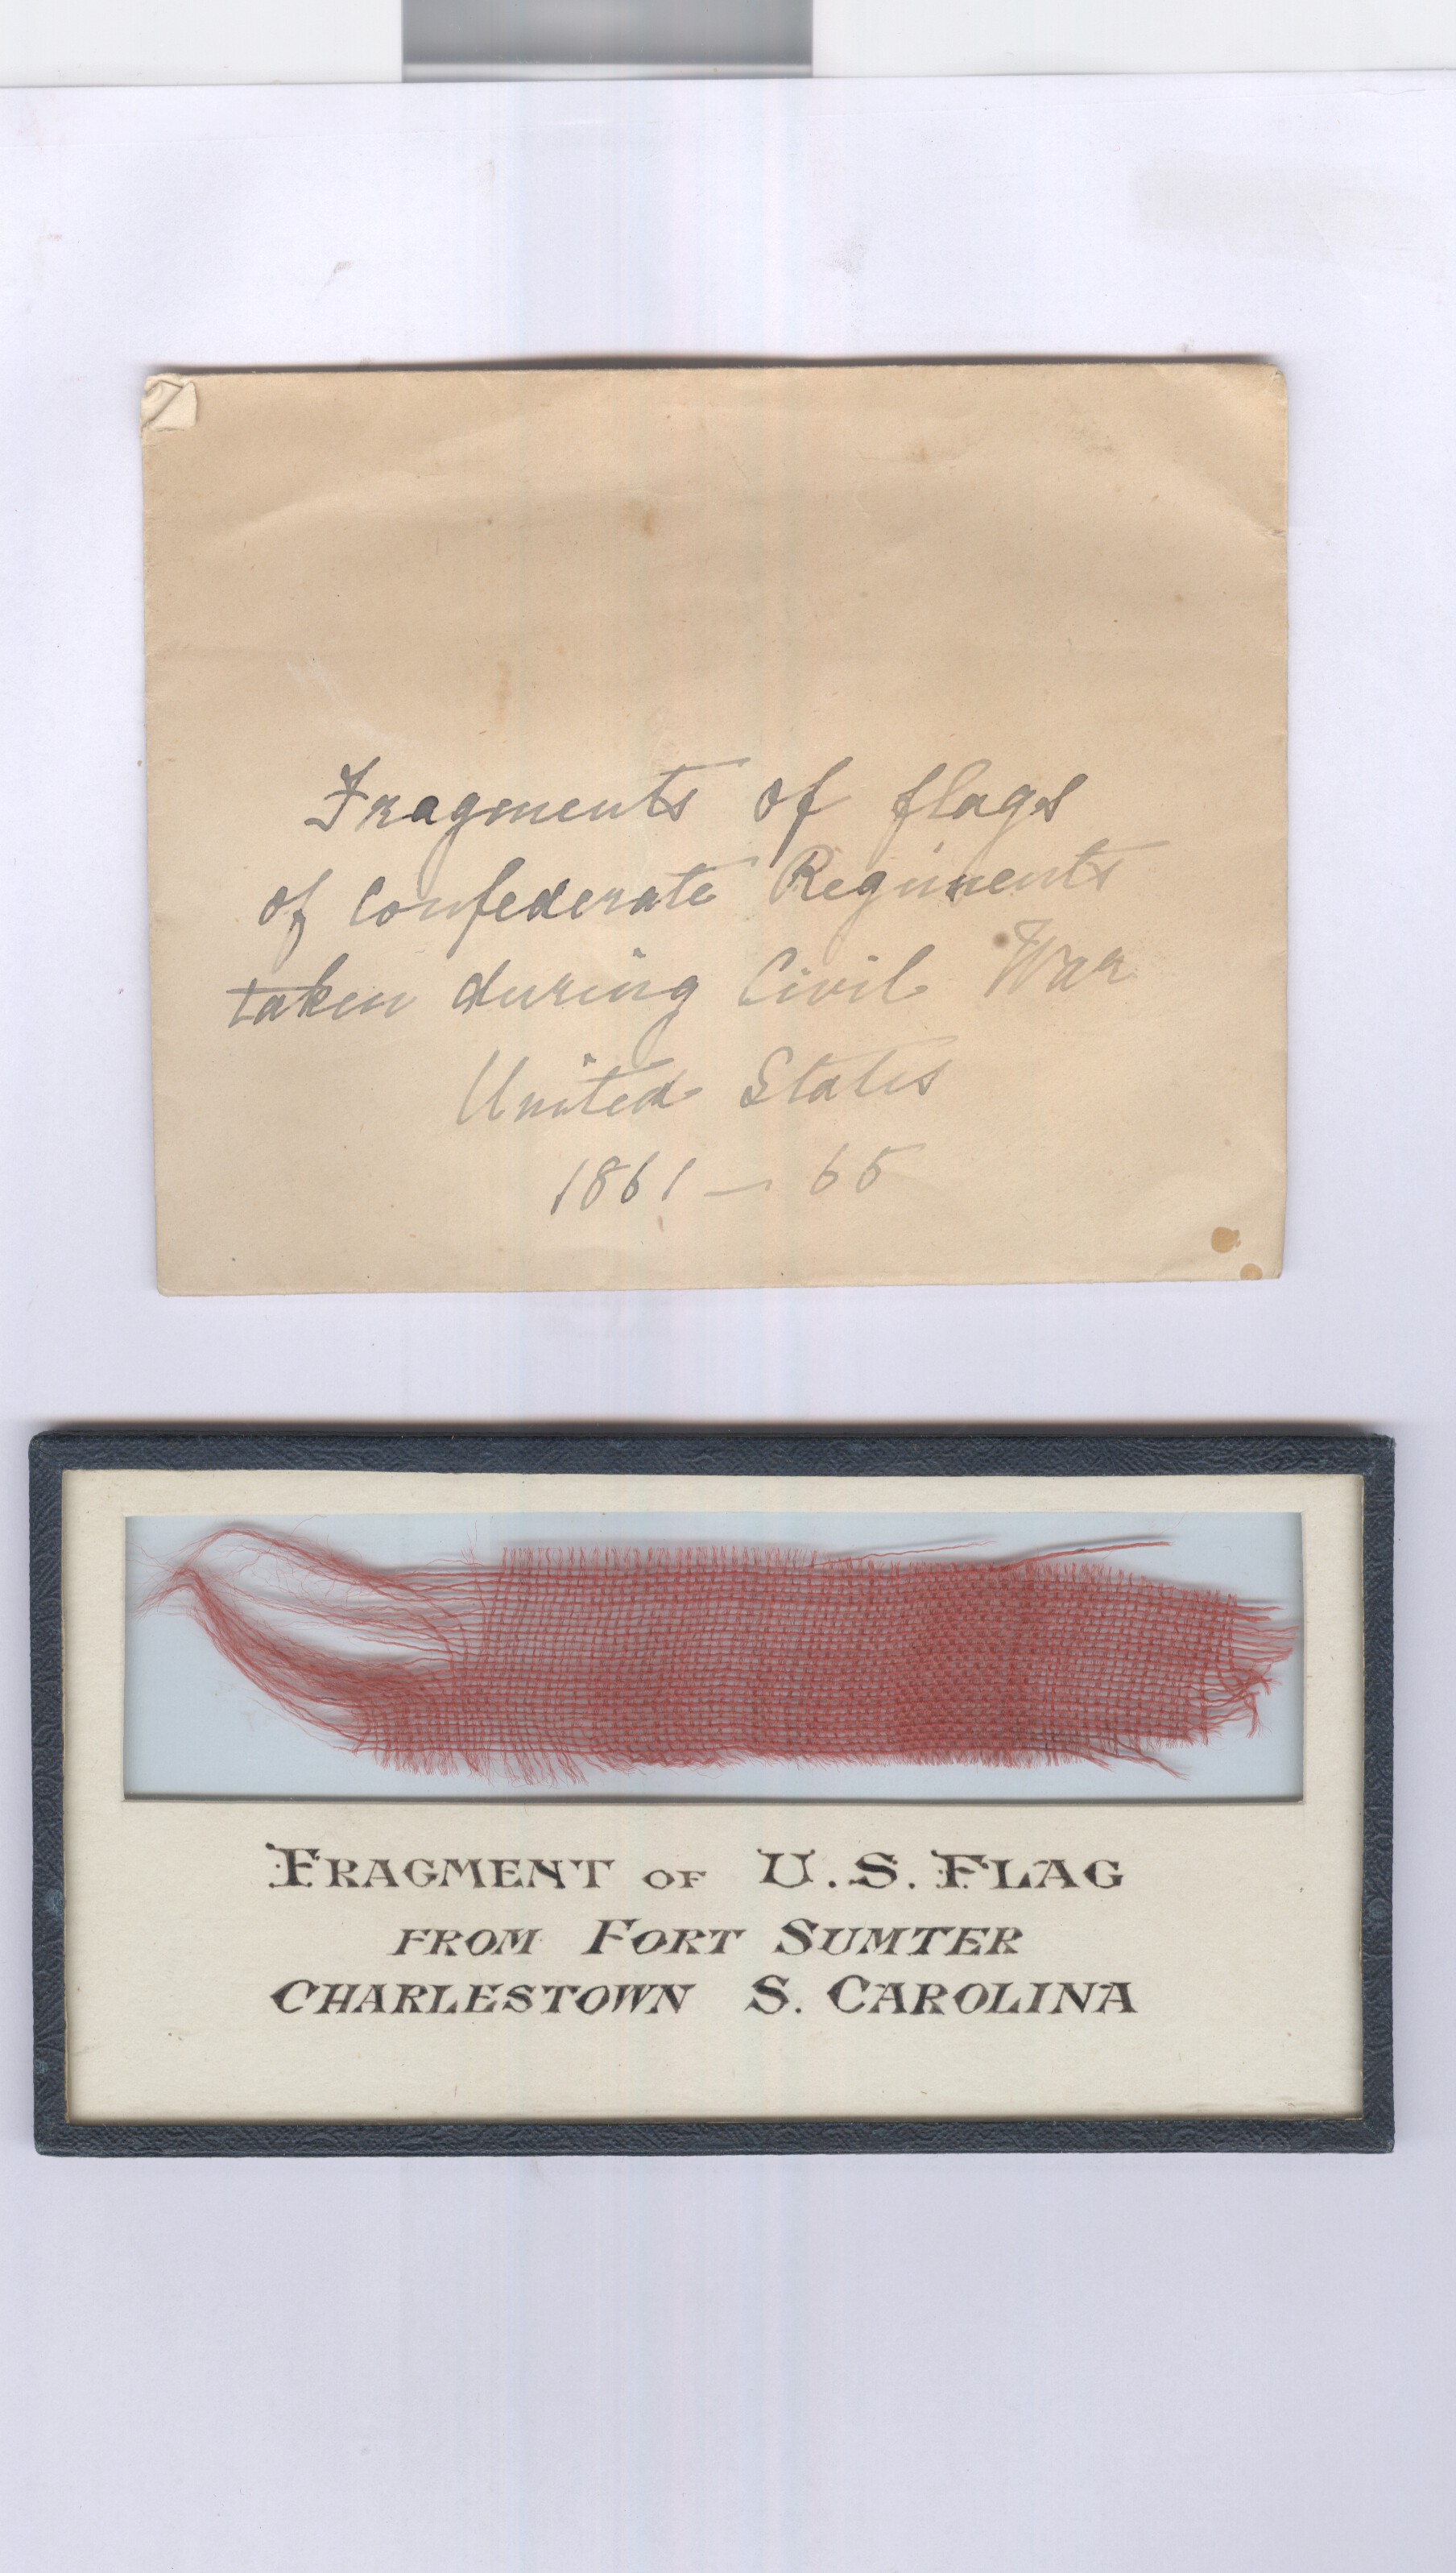 Fragments of flags
of Confederate Regiments
taken during Civil War
United States
1861 — 65
FRAGMENT OF U.S. FLAG
FROM FORT SUMTER
CHARLESTOWN S. CAROLINA